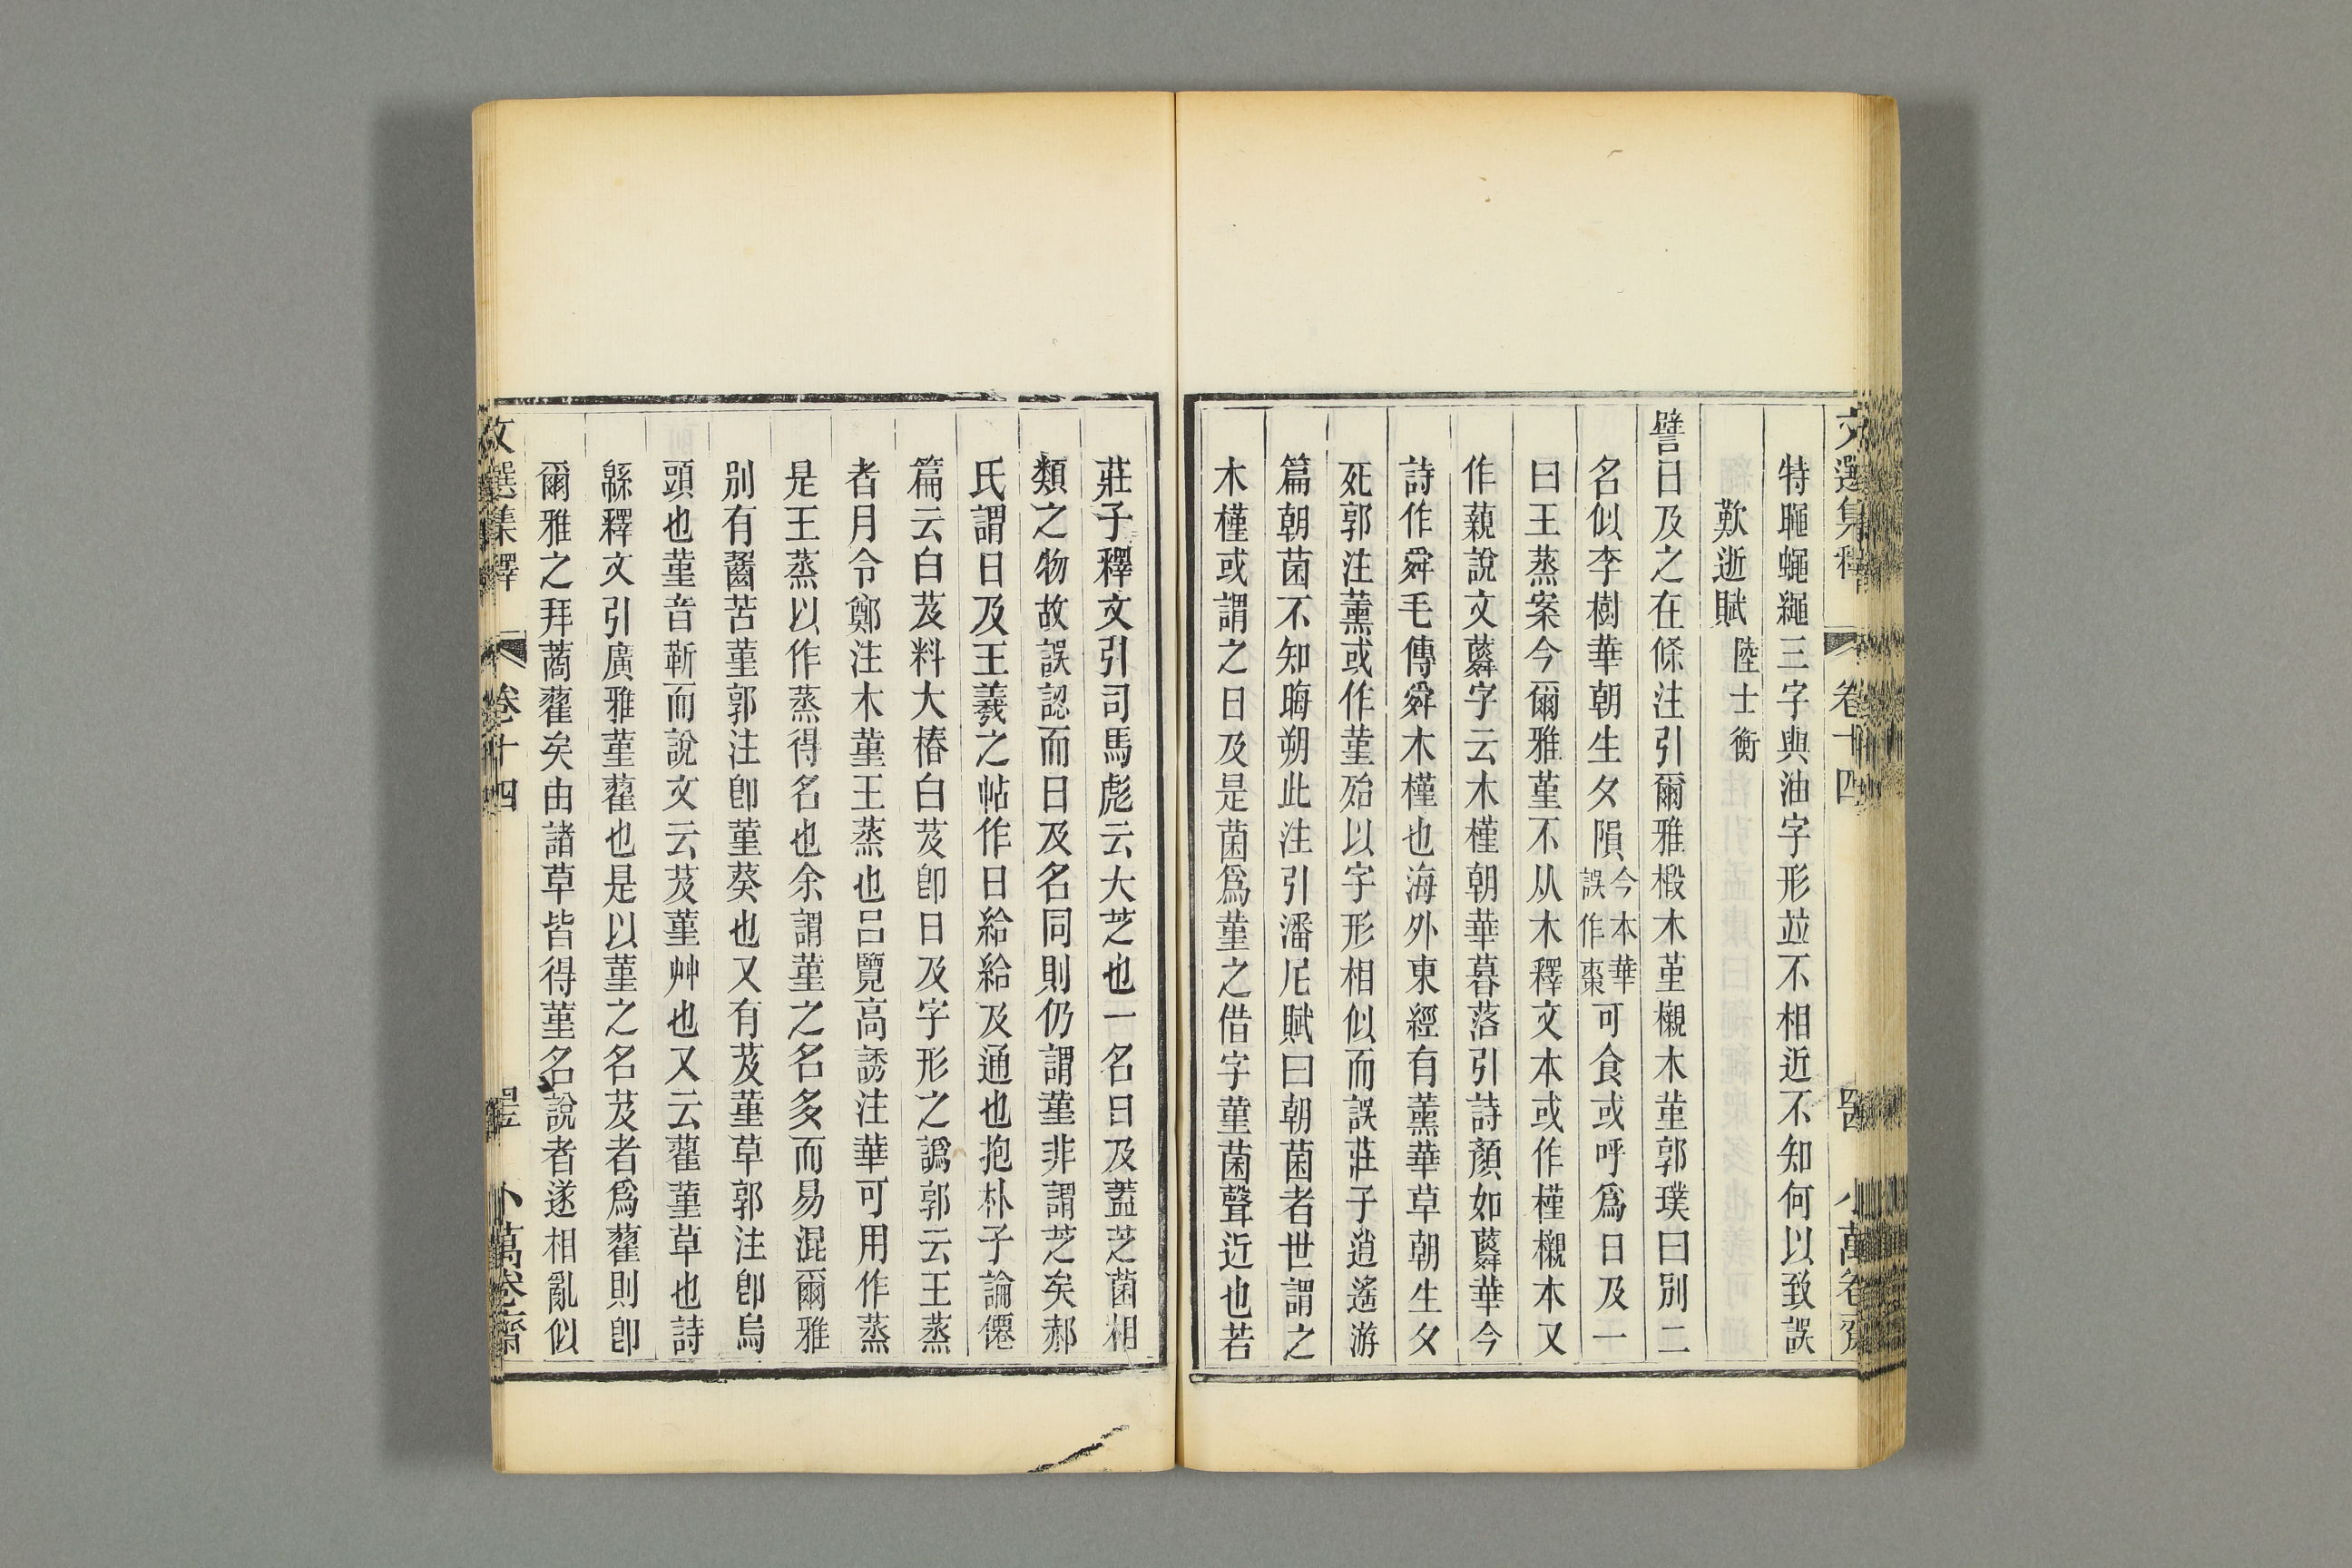 文選集釋 卷十四 四 小萬卷齋
特䵷蠅繩三字與油字形並不相近不知何以致誤
歎逝賦 陸士衡
譬日及之在條注引爾雅椴木堇櫬木堇郭璞曰別二
名似李樹華朝生夕隕今本華誤作棗可食或呼爲日及一
曰王蒸案今爾雅堇不从木釋文本或作槿櫬木又
作藽說文蕣字云木槿朝華暮落引詩顏如蕣華今
詩作舜毛傳舜木槿也海外東經有薰華草朝生夕
死郭注薰或作堇殆以字形相似而誤莊子逍遙游
篇朝菌不知晦朔此注引潘尼賦曰朝菌者世謂之
木槿或謂之日及是菌爲堇之借字堇菌聲近也若
莊子釋文引司馬彪云大芝也一名日及蓋芝菌相
類之物故誤認而日及名同則仍謂堇非謂芝矣郝
氏謂日及王羲之帖作日給給及通也抱朴子論僊
篇云白芨料大椿白芨卽日及字形之譌郭云王蒸
者月令鄭注木堇王蒸也呂覽高誘注華可用作蒸
是王蒸以作蒸得名也余謂堇之名多而易混爾雅
別有齧苦堇郭注卽堇葵也又有芨堇草郭注卽烏
頭也堇音靳而說文云芨堇艸也又云藋堇草也詩
緜釋文引廣雅堇藋也是以堇之名芨者爲藋則卽
爾雅之拜蔏藋矣由諸草皆得堇名說者遂相亂似
文選集釋 卷十四 小萬卷齋